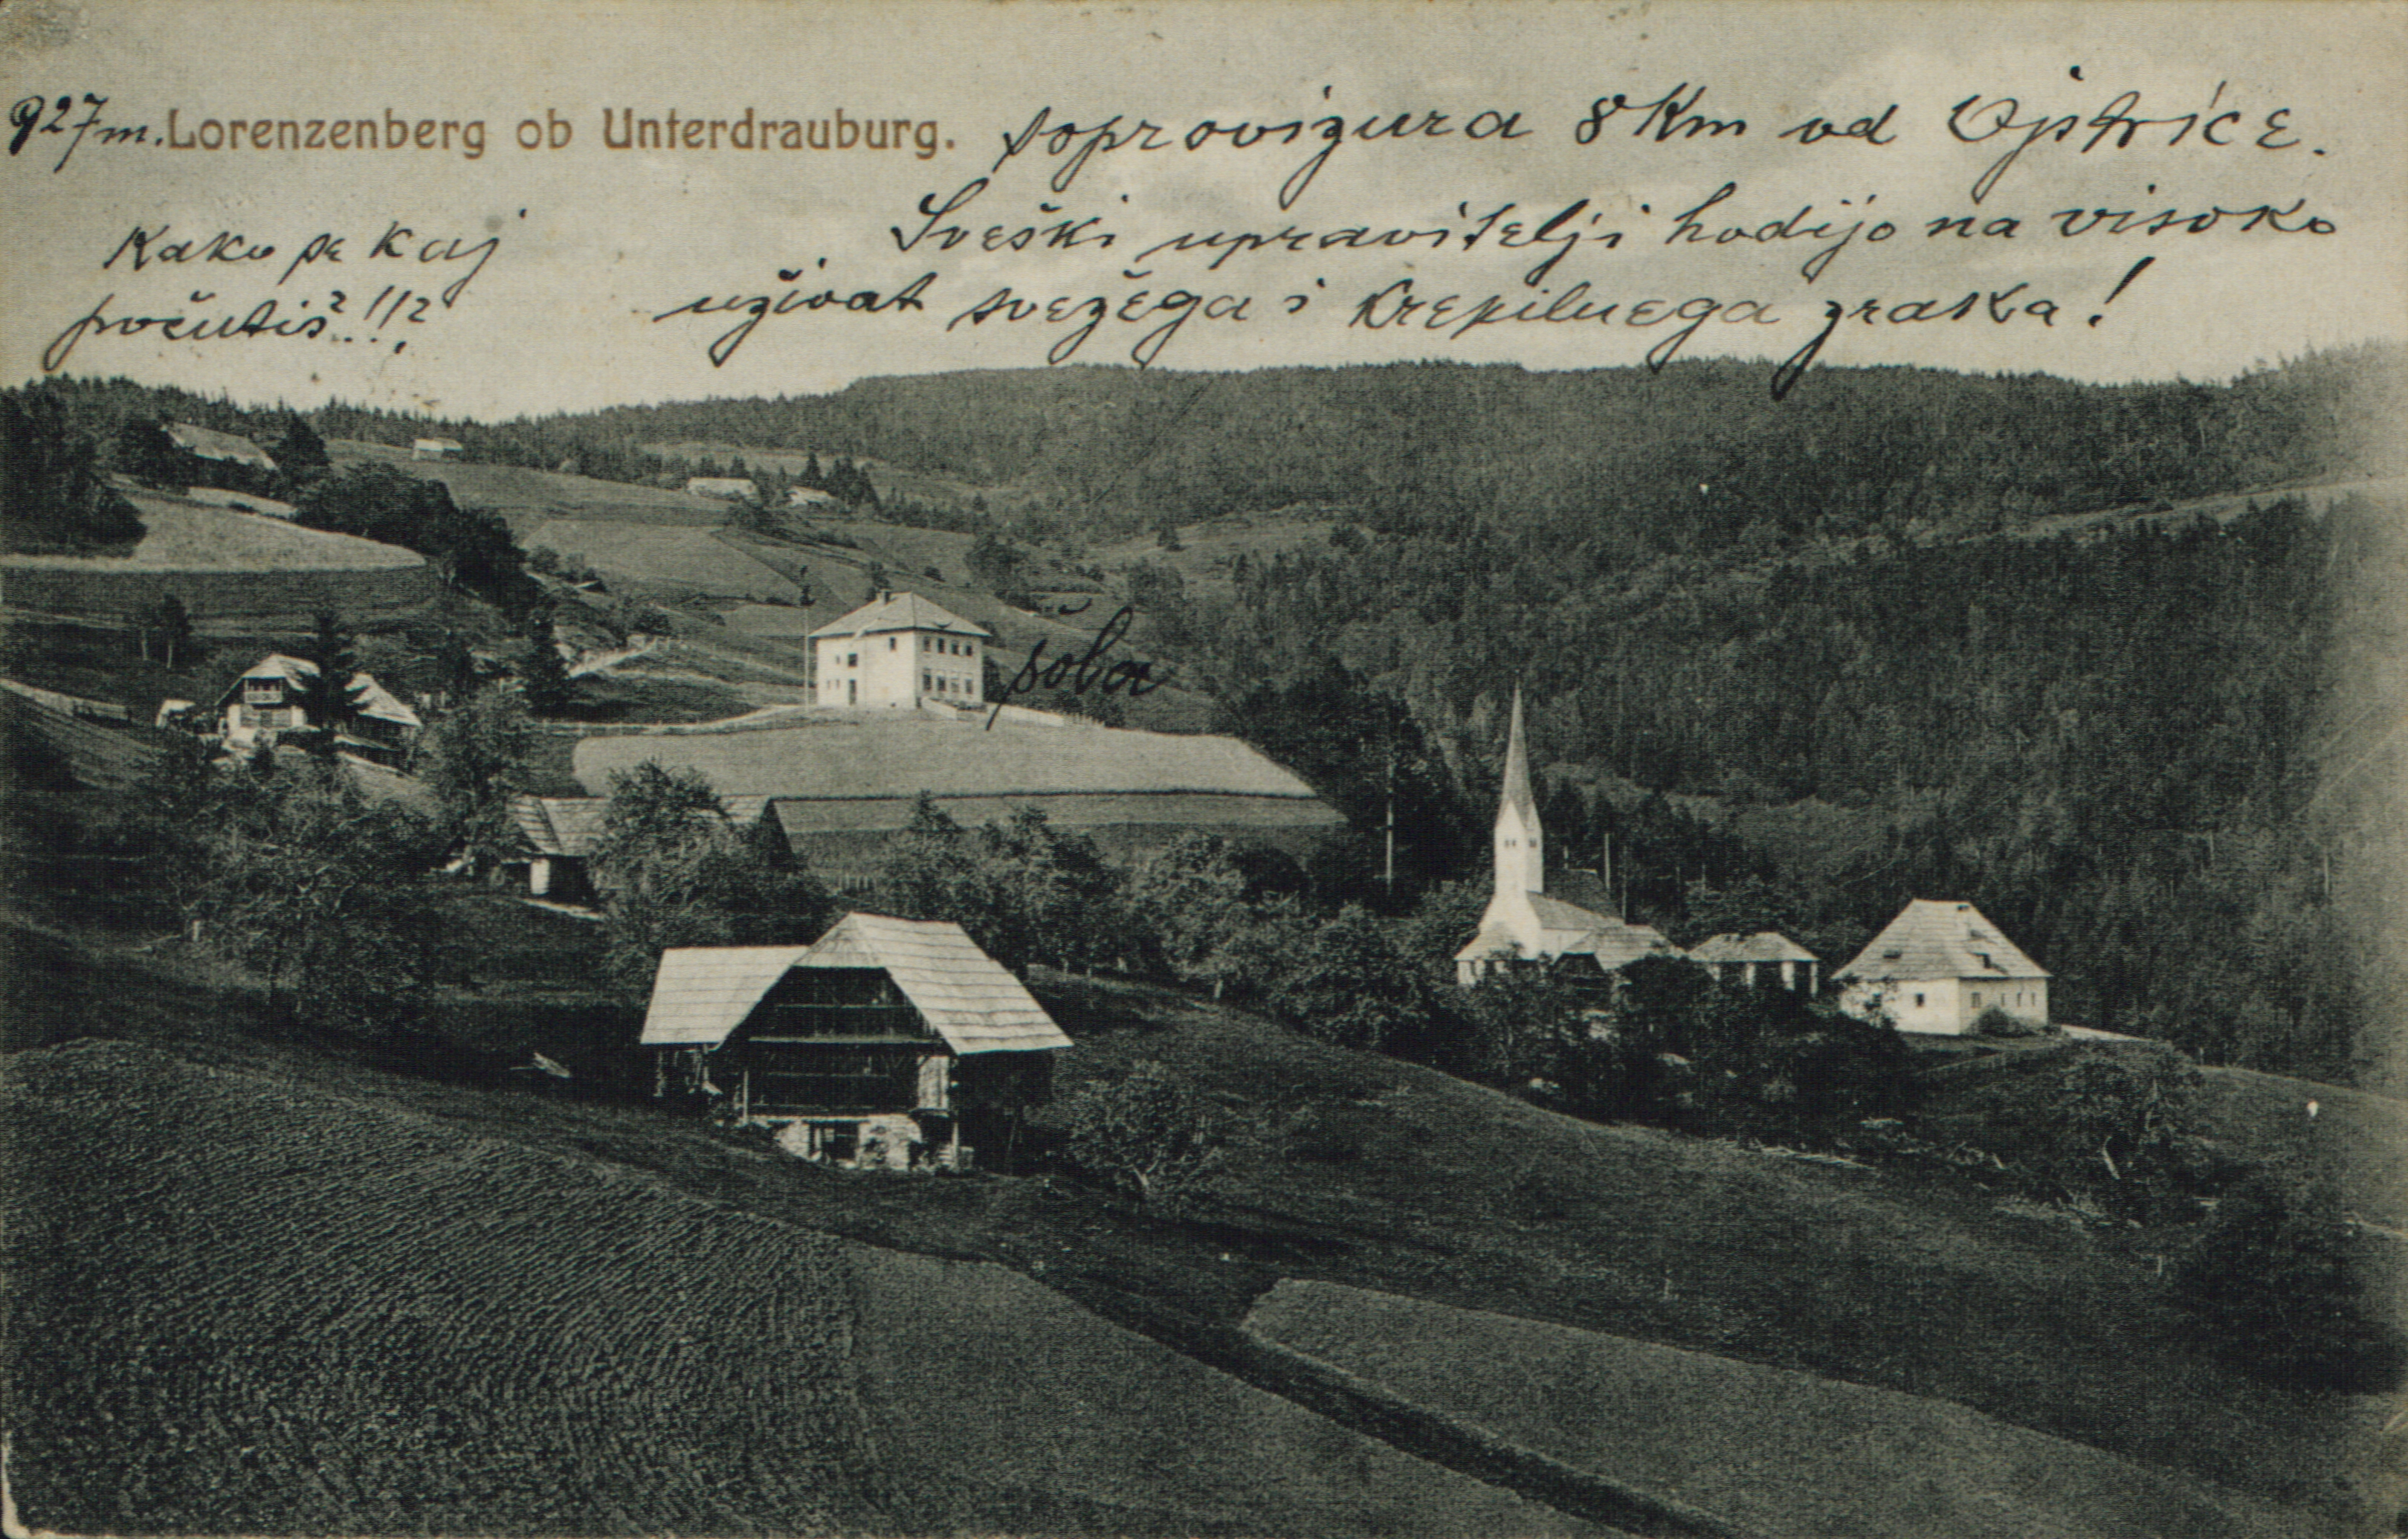 927 m. Lorenzenberg ob Unterdrauburg. 8 Km od Ojstrice.
Sveški upravitelji hodijo na visoko
uživat svežega i krepilnega zraka!
Kako se kaj
počutiš?!!?
šola